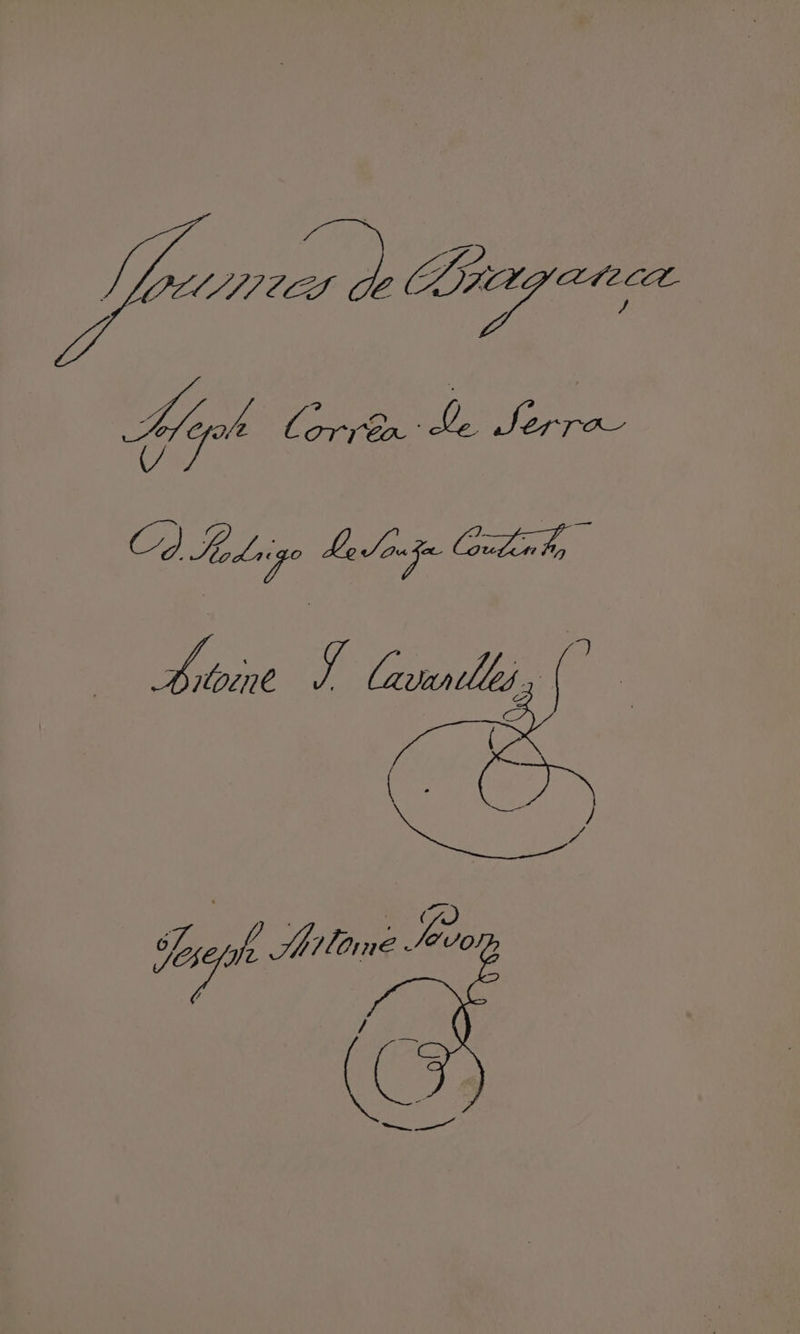 Jeannes de Bragance
Joseph Corrêa de Serra
D. Rodrigo de Souza Coutinho
Antoine J. Cavanilles,
Joseph Antoine